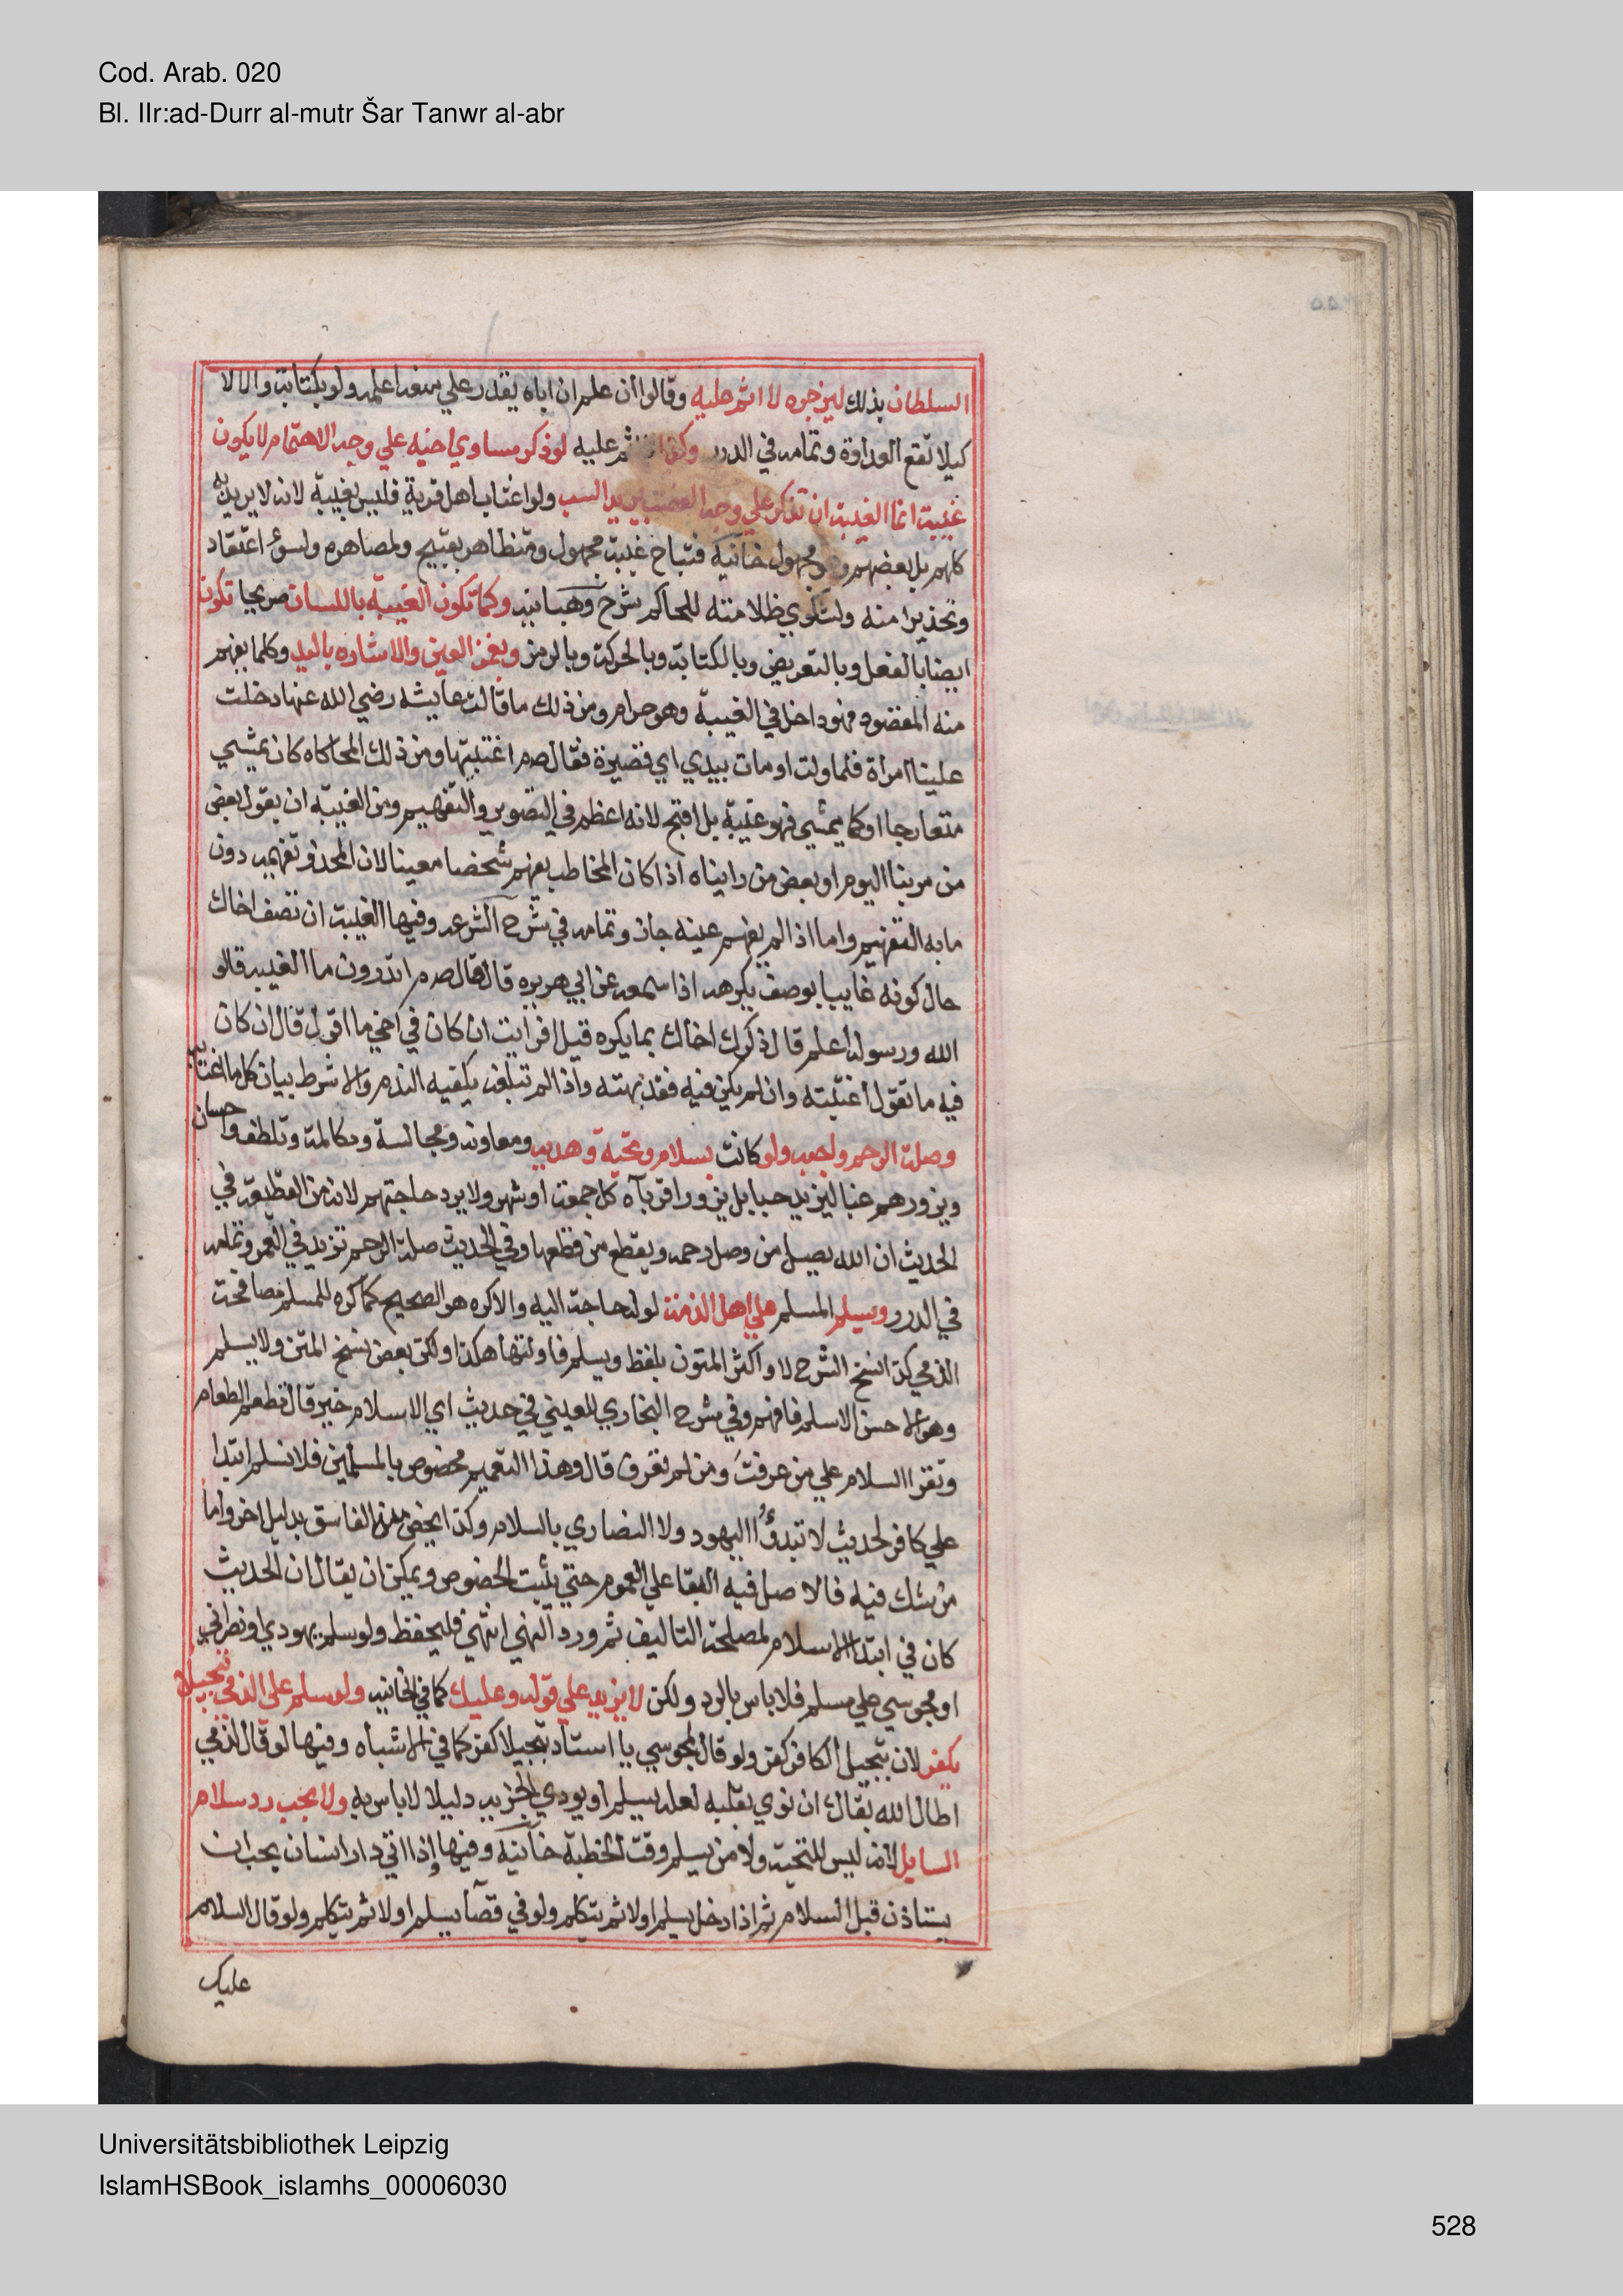 Cod. Arab. 020
Bl. IIr:ad-Durr al-mutr Šar Tanwr al-abr
السلطان بذلك ليزجره لا اثم عليه وقالوا ان علم ان اباه يقدر علي منعه اعلمه ولو بكتابة والا لا
كيلا تقع العداوة وتمامه في الدرر وكذا اثم عليه لو ذكر مساوي اخيه علي وجه الاهتمام لا يكون
غيبة انما الغيبة ان تذكر علي وجه الغضب يريد السب ولو اغتاب اهل قرية فليس بغيبة لانه لا يريد به
كلهم بل بعضهم وهو مجهول خانية فتباح غيبة مجهول ومتظاهر بقبيح ولمصاهرة ولسوء اعتقاد
وتحذيرا منه ولشكوي ظلامته للحاكم شرح وهبانية وكما تكون الغيبة باللسان صريحا تكون
ايضا بالفعل وبالتعريض وبالكتابة وبالحركة وبالرمز وبغمز العين والاشاره باليد وكلما يفهم
منه المقصود فهو داخل في الغيبة وهو حرام ومن ذلك ما قالت عايشه رضي الله عنها دخلت
علينا امرأة فلما ولت اومات بيدي اي قصيرة فقال صم اغتبتها ومن ذلك المحاكاه كان يمشي
متعارجا او كما يمشي فهو غيبة بل اقبح لانه اعظم في التصوير والتفهيم ومن الغيبة ان يقول بعض
من مر بنا اليوم او بعض من رايناه اذا كان المخاطب يفهم شخصا معينا لان المحذور تفهيمه دون
ما به التفهيم واما اذا لم يفهم عينه جاز وتمامه في شرح الشرعه وفيها الغيبة ان تصف اخاك
حال كونه غايبا بوصف يكرهه اذا سمعه عن ابي هريره قال قال صم اتدرون ما الغيبة قالو
الله ورسوله اعلم قال ذكرك اخاك بما يكره قيل افرايت ان كان في اخي ما اقول قال ان كان
فيه ما تقول اغتبته وان لم يكن فيه فقد بهته واذا لم تبلغه يكفيه الندم والا شرط بيان كل ما اغتابه به
وصلة الرحم واجبه ولو كانت بسلام وتحية وهديه ومعاونه ومجالسة ومكالمة وتلطف واحسان
ويزورهم غبا ليزيد حبا بل يزور اقرباه كل جمعة او شهر ولا يرد حاجتهم لانه من القطيعة في
الحديث ان الله يصل من وصل رحمه ويقطع من قطعها وفي الحديث صلة الرحم تزيد في العمر وتمامه
في الدرر ويسلم المسلم علي اهل الذمة لو له حاجة اليه والا كره هو الصحيح كما كره للمسلم مصافحة
الذمي كذا نسخ الشرح لا واكثر المتون بلفظ ويسلم فاولتها هكذا ولكن بعض نسخ المتن ولا يسلم
وهو الاحسن الاسلم فافهم وفي شرح البخاري للعيني في حديث اي الاسلام خير قال تطعم الطعام
وتقرا السلام علي من عرفت ومن لم تعرف قال وهذا التعميم مخصوص بالمسلمين فلا تسلم ابتدا
علي كافر لحديث لا تبدؤا اليهود ولا النصاري بالسلام وكذا يخص منه الفاسق بدليل اخر واما
من شك فيه فالاصل فيه البقا علي العموم حتي يثبت الخصوص ويمكن ان يقال ان الحديث
كان في ابتدا الاسلام لمصلحة التاليف ثم ورد النهي انتهي فليحفظ ولو سلم يهودي او نصراني
او مجوسي علي مسلم فلا باس بالرد ولكن لا يزيد علي قوله وعليك كما في الخانيه ولو سلم علي الذمي تبجيلا
يكفر لان تبجيل الكافر كفر ولو قال لمجوسي يا استاد تبجيلا كفر كما في الاشباه وفيها لو قال لذمي
اطال الله بقاك ان نوي بقلبه لعله يسلم او يودي الجزيه ذليلا لا باس به ولا يجب رد سلام
السايل لانه ليس للتحيه ولا من يسلم وقت الخطبة خانية وفيها واذا اتي دار انسان يجب ان
يستاذن قبل السلام ثم اذا دخل يسلم اولا ثم يتكلم ولو في فضآ يسلم اولا ثم يتكلم ولو قال السلام
عليك
Universitätsbibliothek Leipzig
IslamHSBook_islamhs_00006030
528